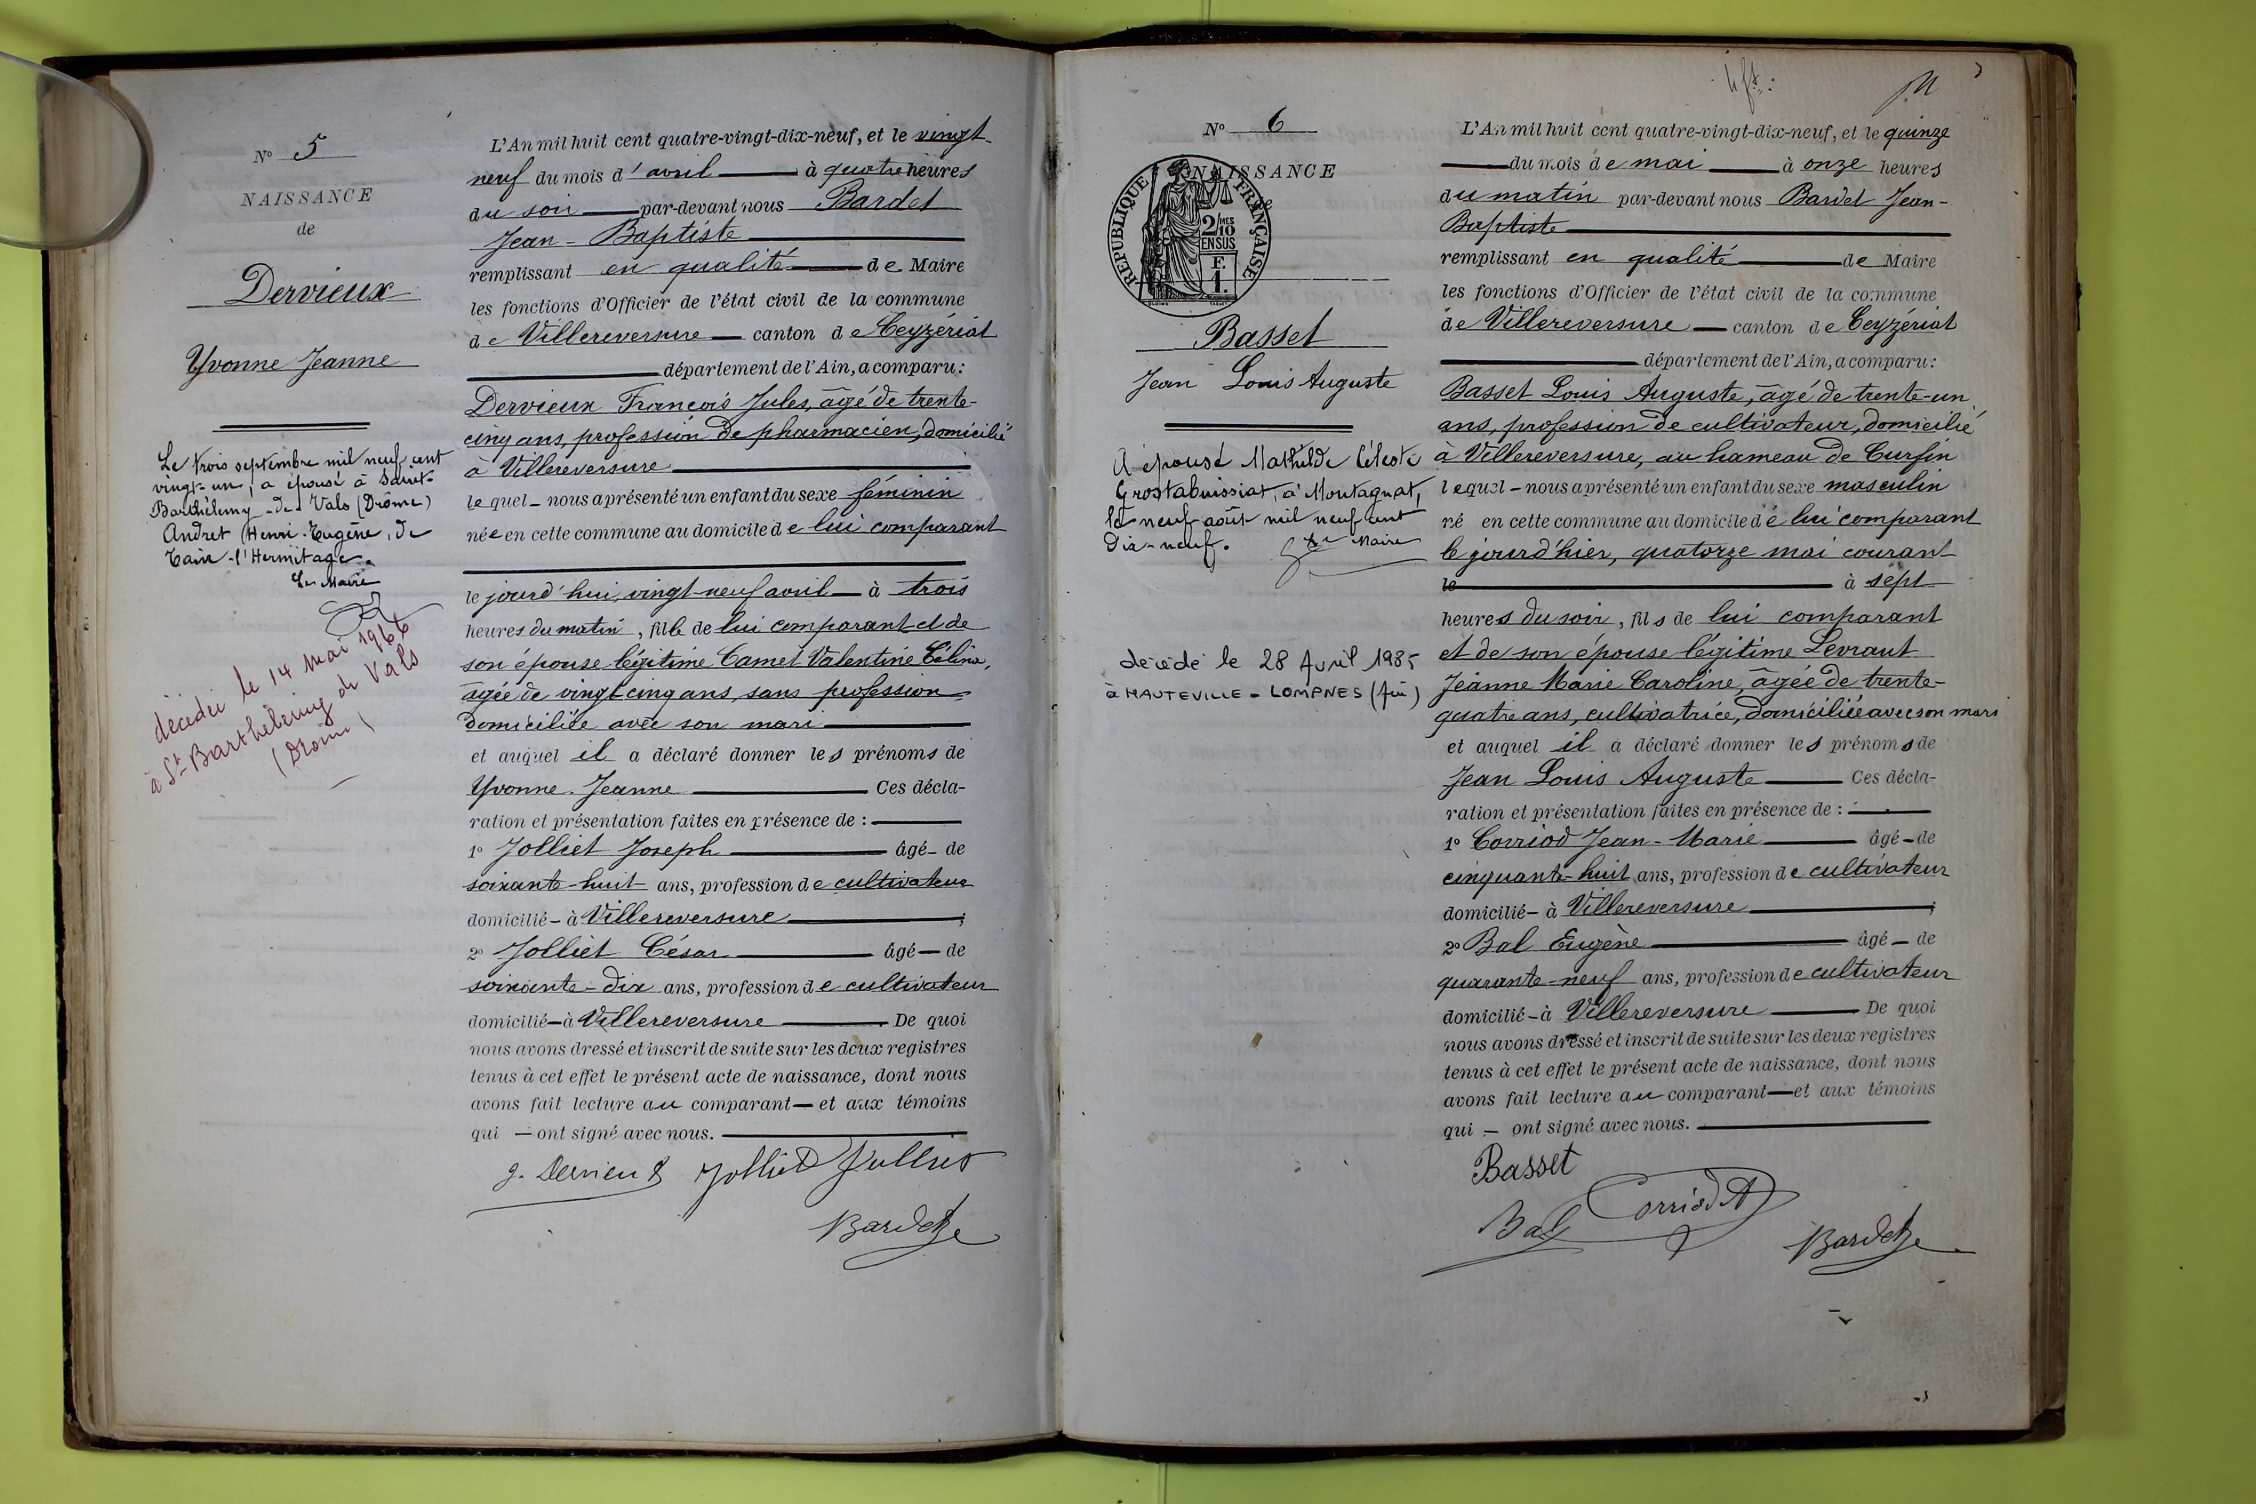 N° 5
NAISSANCE
de
Dervieux
Yvonne Jeanne
Le trois septembre mil neuf cent
vingt-un, a épousé à Saint-
Barthélemy-de-Vals (Drôme)
Andret (Henri-Eugène, de
Tain-l'Hermitage.
Le Maire
décédée le 14 mai 1966
à St Barthélemy de Vals
(Drôme)
L'An mil huit cent quatre-vingt-dix-neuf, et le vingt-
neuf du mois d'avril à quatre heures
du soir par-devant nous Bardet
Jean-Baptiste
remplissant en qualité de Maire
les fonctions d'Officier de l'état civil de la commune
de Villereversure canton de Ceyzériat
département de l'Ain, a comparu :
Dervieux François Jules, âgé de trente-
cinq ans, profession de pharmacien, domicilié
à Villereversure
lequel nous a présenté un enfant du sexe féminin
née en cette commune au domicile de lui comparant
le jourd'hui, vingt-neuf avril à trois
heures du matin, fille de lui comparant et de
son épouse légitime Camet Valentine Célina,
âgée de vingt cinq ans, sans profession
domiciliée avec son mari
et auquel il a déclaré donner les prénoms de
Yvonne Jeanne Ces décla-
ration et présentation faites en présence de :
1° Jolliet Joseph âgé de
soixante-huit ans, profession de cultivateur
domicilié à Villereversure ;
2° Jolliet César âgé de
soixante-dix ans, profession de cultivateur
domicilié à Villereversure De quoi
nous avons dressé et inscrit de suite sur les deux registres
tenus à cet effet le présent acte de naissance, dont nous
avons fait lecture au comparant et aux témoins
qui ont signé avec nous.
J. Dervieux Jolliet Jolliet
Bardet
N° 6
NAISSANCE
de
RÉPUBLIQUE FRANÇAISE
2/10 MES
EN SUS
F.
1.
Basset
Jean Louis Auguste
A épousé Mathilde Céleste
Grostabuissiat, à Montagnat,
le neuf août mil neuf cent
dix-neuf. Le Maire
décédé le 28 Avril 1985
à HAUTEVILLE-LOMPNES (Ain)
L'An mil huit cent quatre-vingt-dix-neuf, et le quinze
du mois de mai à onze heures
du matin par-devant nous Bardet Jean-
Baptiste
remplissant en qualité de Maire
les fonctions d'Officier de l'état civil de la commune
de Villereversure canton de Ceyzériat
département de l'Ain, a comparu :
Basset Louis Auguste, âgé de trente-un
ans, profession de cultivateur, domicilié
à Villereversure, au hameau de Curfin
lequel nous a présenté un enfant du sexe masculin
né en cette commune au domicile de lui comparant
le jourd'hier, quatorze mai courant
le à sept
heures du soir, fils de lui comparant
et de son épouse légitime Levraut
Jeanne Marie Caroline, âgée de trente-
quatre ans, cultivatrice, domiciliée avec son mari
et auquel il a déclaré donner les prénoms de
Jean Louis Auguste Ces décla-
ration et présentation faites en présence de :
1° Corriod Jean-Marie âgé de
cinquante-huit ans, profession de cultivateur
domicilié à Villereversure ;
2° Bal Eugène âgé de
quarante-neuf ans, profession de cultivateur
domicilié à Villereversure De quoi
nous avons dressé et inscrit de suite sur les deux registres
tenus à cet effet le présent acte de naissance, dont nous
avons fait lecture au comparant et aux témoins
qui ont signé avec nous.
Basset
Bal Corriod
Bardet